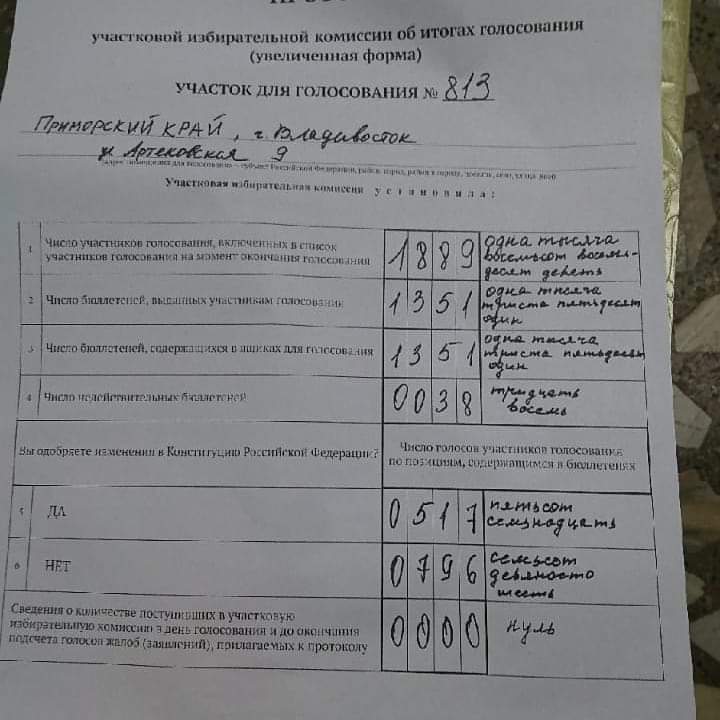 участковой избирательной комиссии об итогах голосования
(увеличенная форма)
УЧАСТОК ДЛЯ ГОЛОСОВАНИЯ № 813
Приморский край, г. Владивосток
ул Артековская 9
Участковая избирательная комиссия установила:
1 Число участников голосования, включенных в список участников голосования на момент окончания голосования 1889 одна тысяча восемьсот восемьдесят девять
2 Число бюллетеней, выданных участникам голосования 1351 одна тысяча триста пятьдесят один
3 Число бюллетеней, содержащихся в ящиках для голосования 1351 одна тысяча триста пятьдесят один
4 Число недействительных бюллетеней 0038 тридцать восемь
Вы одобряете изменения в Конституцию Российской Федерации?
Число голосов участников голосования
по позициям, содержащимся в бюллетенях
5 ДА 0517 пятьсот семнадцать
6 НЕТ 0796 семьсот девяносто шесть
Сведения о количестве поступивших в участковую
избирательную комиссию в день голосования и до окончания
подсчета голосов жалоб (заявлений), прилагаемых к протоколу
0000 нуль